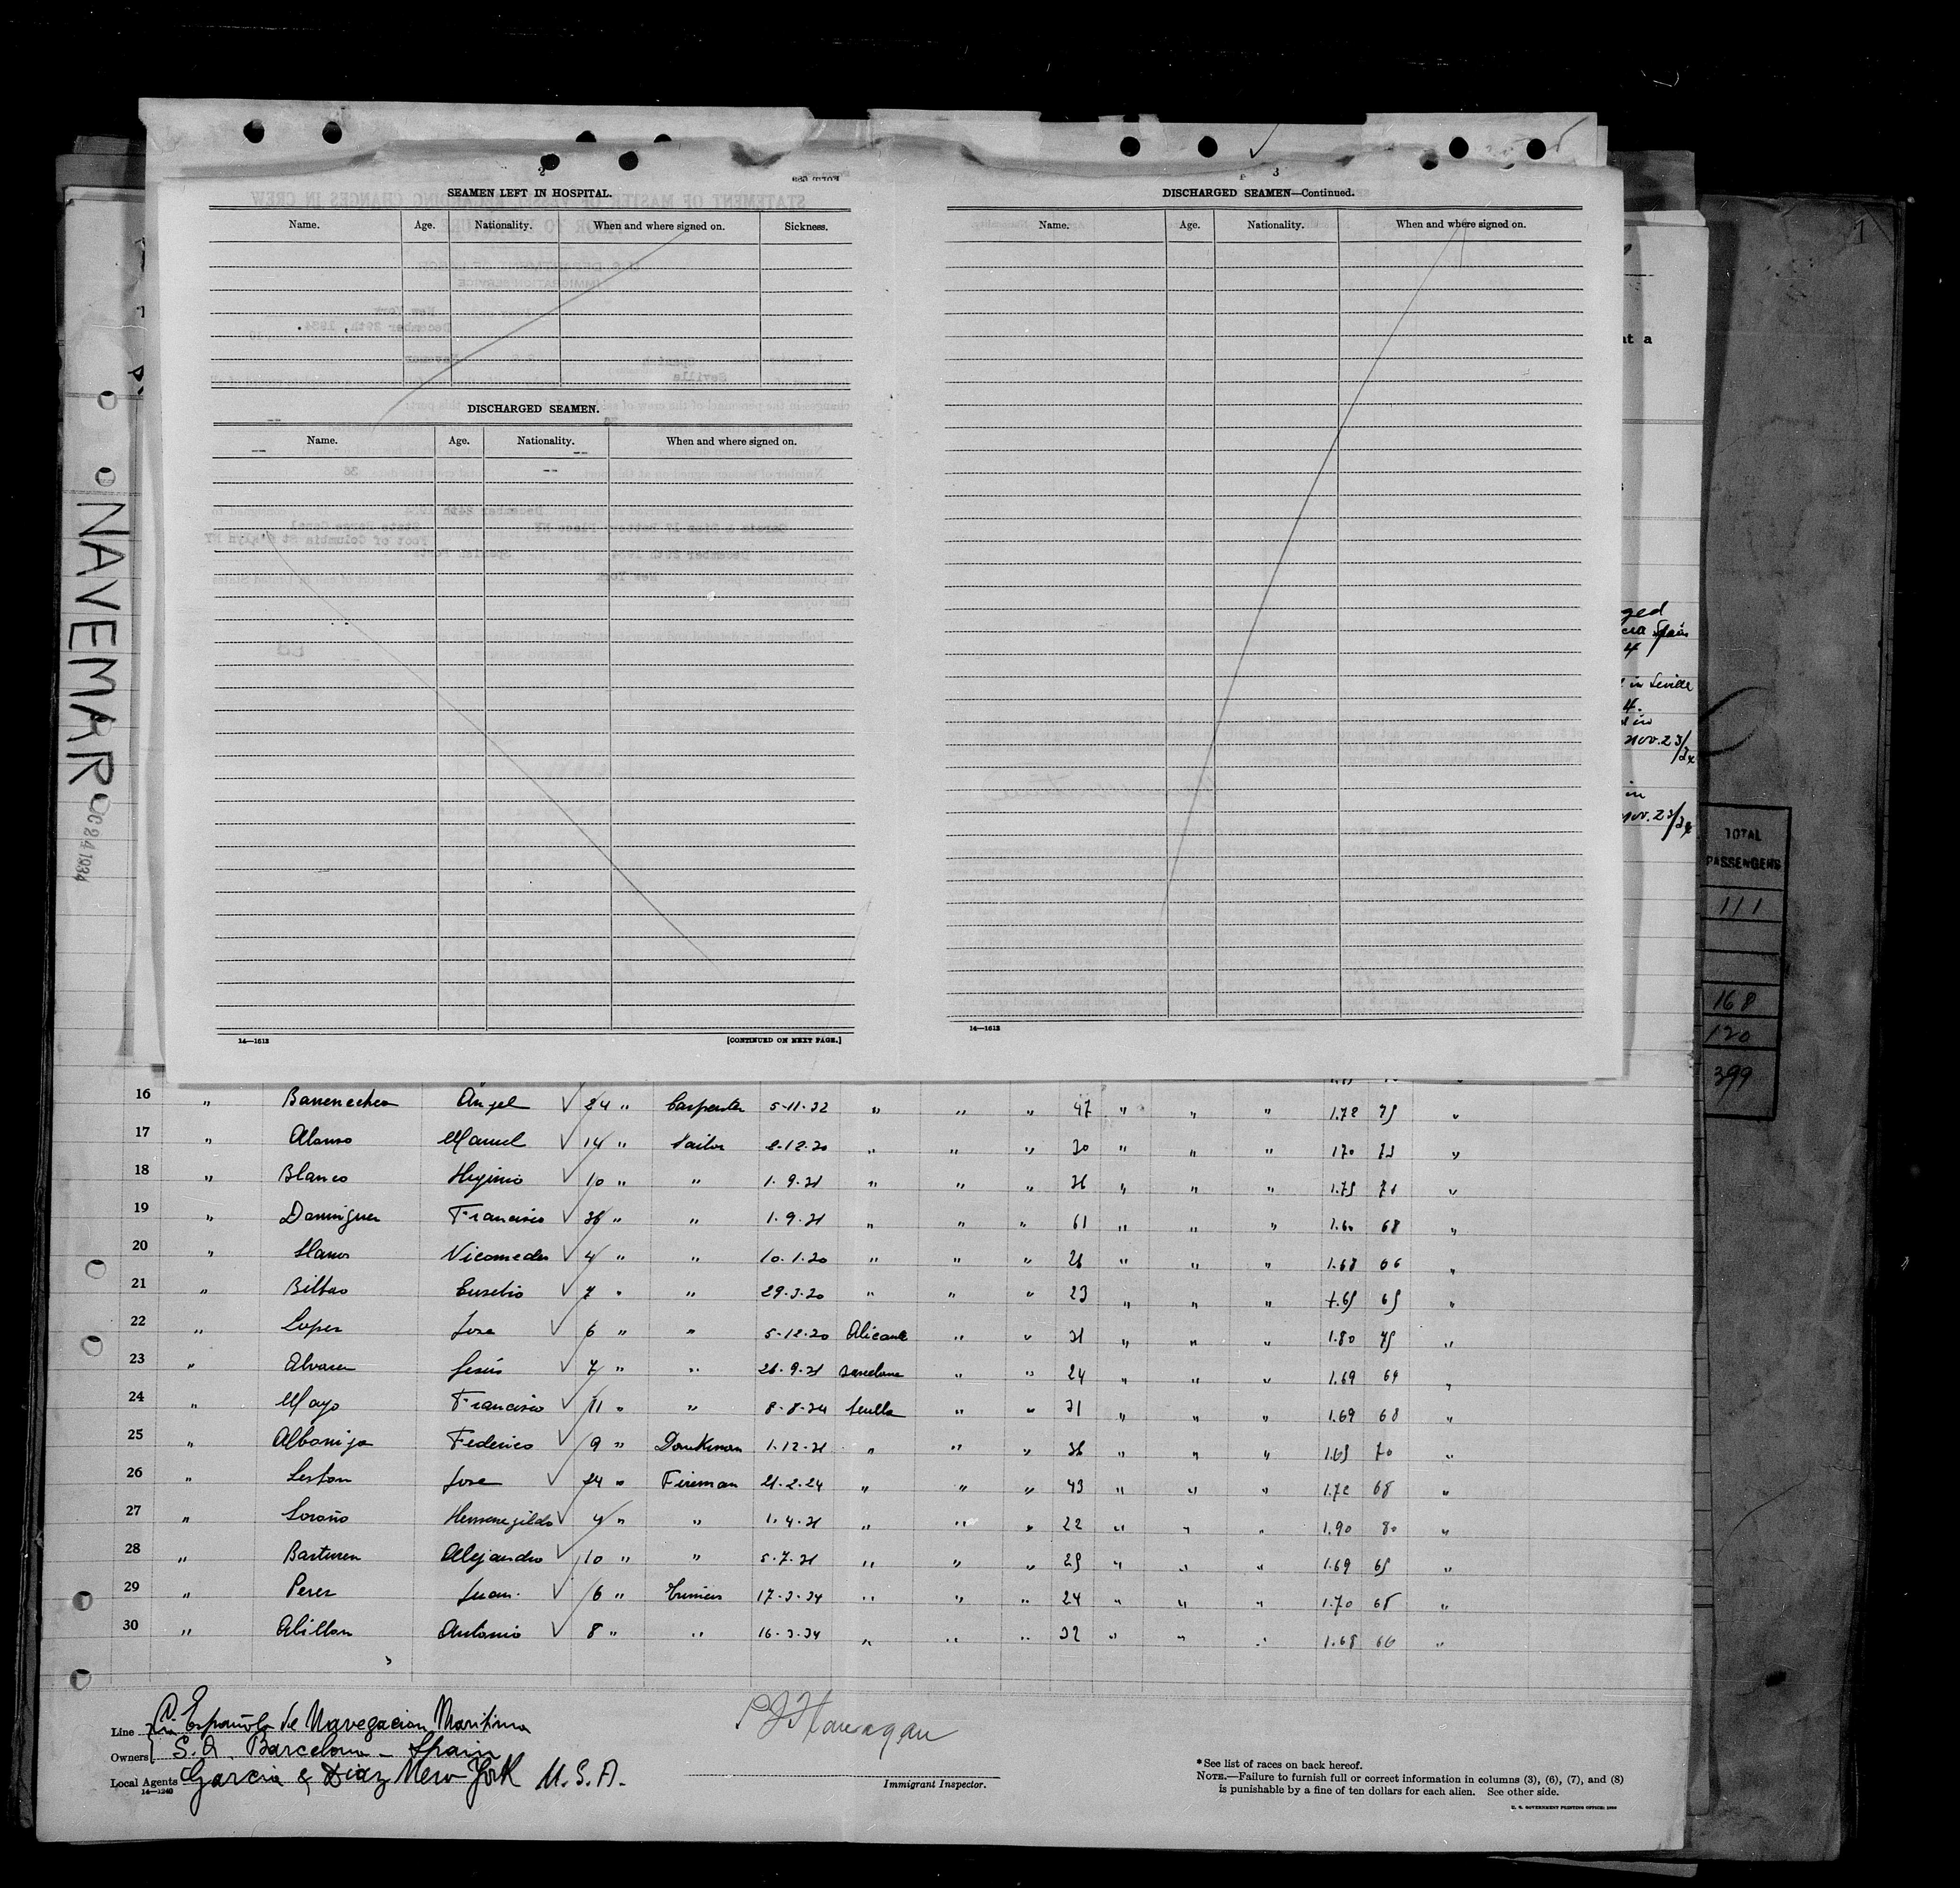 2
SEAMEN LEFT IN HOSPITAL.
Name. Age. Nationality. When and where signed on. Sickness.
DISCHARGED SEAMEN.
Name. Age. Nationality. When and where signed on.
14—1613
[CONTINUED ON NEXT PAGE.]
3
DISCHARGED SEAMEN—Continued.
Name. Age. Nationality. When and where signed on.
14—1613
NAVEMAR
DC 24 1934
at a
Spain
in Seville
4.
in
Nov. 23/34
in
Nov. 23/34
1
TOTAL
PASSENGERS
111
168
120
399
16 " Barrenechea Angel 24 " Carpenter 5-11-32 " " " 47 " " " 1.72 75 "
17 " Alonso Manuel 14 " Sailor " " " 30 " " " 170 73 "
18 " Blanco Higinio 10 " " 1.9.31 " " " 36 " " " 1.75 "
19 " Dominguez Francisco 36 " " 1.9.31 " " " 61 " " " 1.60 68 "
20 " Llanos Nicomedes 4 " " 10.1.30 " " " 26 " " " 1.68 66 "
21 " Bilbao Eusebio 7 " " 29.3.30 " " " 23 " " " 1.65 65 "
22 " Lopez Jose 6 " " 5-12.30 Alicante " " 31 " " " 1.80 75 "
23 " Alvarez Jesús 7 " " 26.9.31 Barcelona " " 24 " " " 1.69 64 "
24 " Mayo Francisco 11 " " 8-8-34 Sevilla " " 31 " " " 1.69 68 "
25 " Albóniga Federico 9 " Donkman 1.12.31 " " " 36 " " " 1.65 70 "
26 " Leston Jose 24 " Fireman 21.2.24 " " " 43 " " " 1.72 68 "
27 " Soroño Hermenegildo 4 " " 1.4.31 " " " 22 " " " 1.90 80 "
28 " Basturen Alejandro 10 " " 5.7.31 " " " 25 " " " 1.69 65 "
29 " Perez Juan. 6 " Trimmer 17-3-34 " " " 24 " " " 1.70 65 "
30 " Abillon Antonio 8 " " 16-3-34 " " " 32 " " " 1.68 66 "
Line Cia Española de Navegacion Maritima
Owners S. A. Barcelona - Spain
Local Agents Garcia & Diaz New York U. S. A.
14—1240
P J Flannagan
Immigrant Inspector.
*See list of races on back hereof.
NOTE.—Failure to furnish full or correct information in columns (3), (6), (7), and (8)
is punishable by a fine of ten dollars for each alien. See other side.